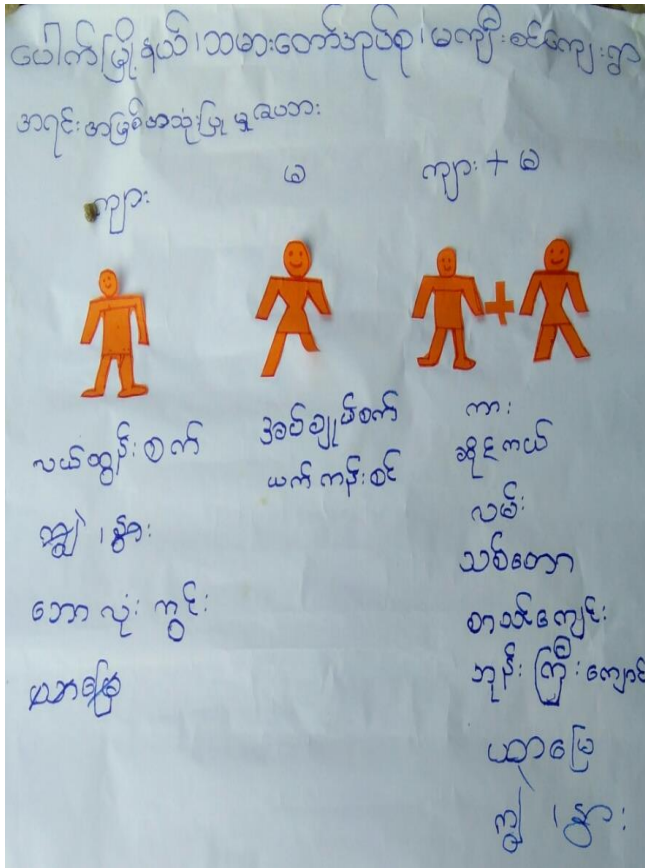 ပေါက်မြို့နယ်၊သမားတော်အုပ်စု၊မကျီးစင်ကျေးရွာ
အရင်းအမြစ်အသုံးပြုမှုဇယား
ကျား
မ
ကျား + မ
လယ်ထွန်းစက်
ကျွဲ၊နွား
ဘောလုံးကွင်း
ယာမြေ
အပ်ချုပ်စက်
ယက်ကန်းစင်
ကား
ဆိုင်ကယ်
လမ်း
သစ်တော
စာသင်ကျောင်း
ဘုန်းကြီးကျောင်း
ယာမြေ
ကျွဲ၊နွား